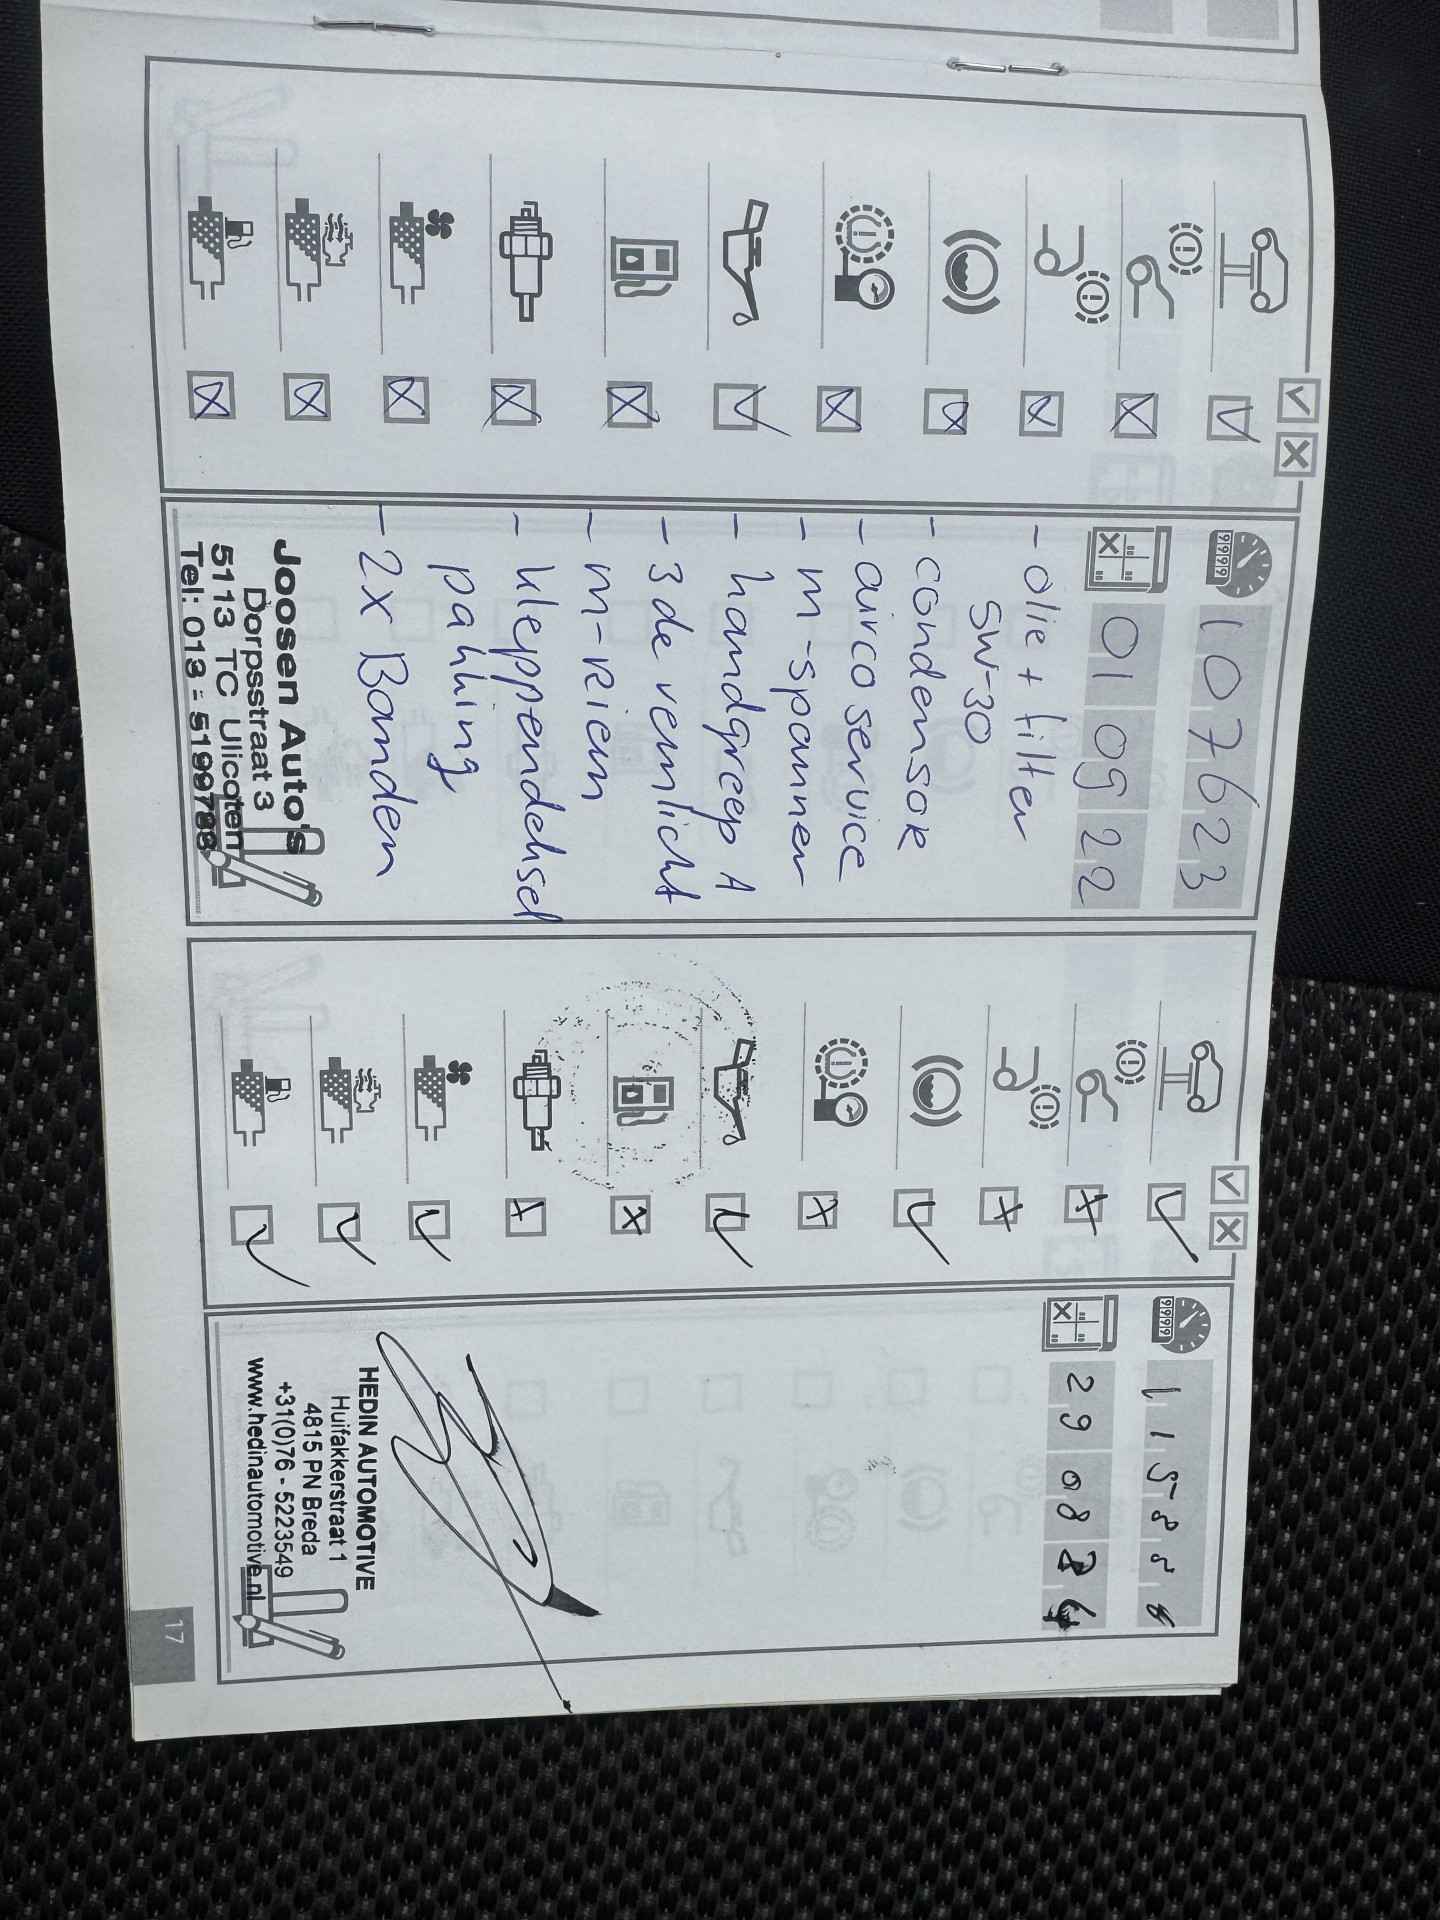 107623
01 09 22
- olie + filter
5W-30
- condensor
- airco service
- m-spanner
- handgreep A
- 3de remlicht
- m-riem
- kleppendeksel
pakking
- 2x Banden
Joosen Auto's
Dorpsstraat 3
5113 TC Ulicoten
Tel: 013 - 5199788
29 08
HEDIN AUTOMOTIVE
Huifakkerstraat 1
4815 PN Breda
+31(0)76 - 5223549
www.hedinautomotive.nl
17